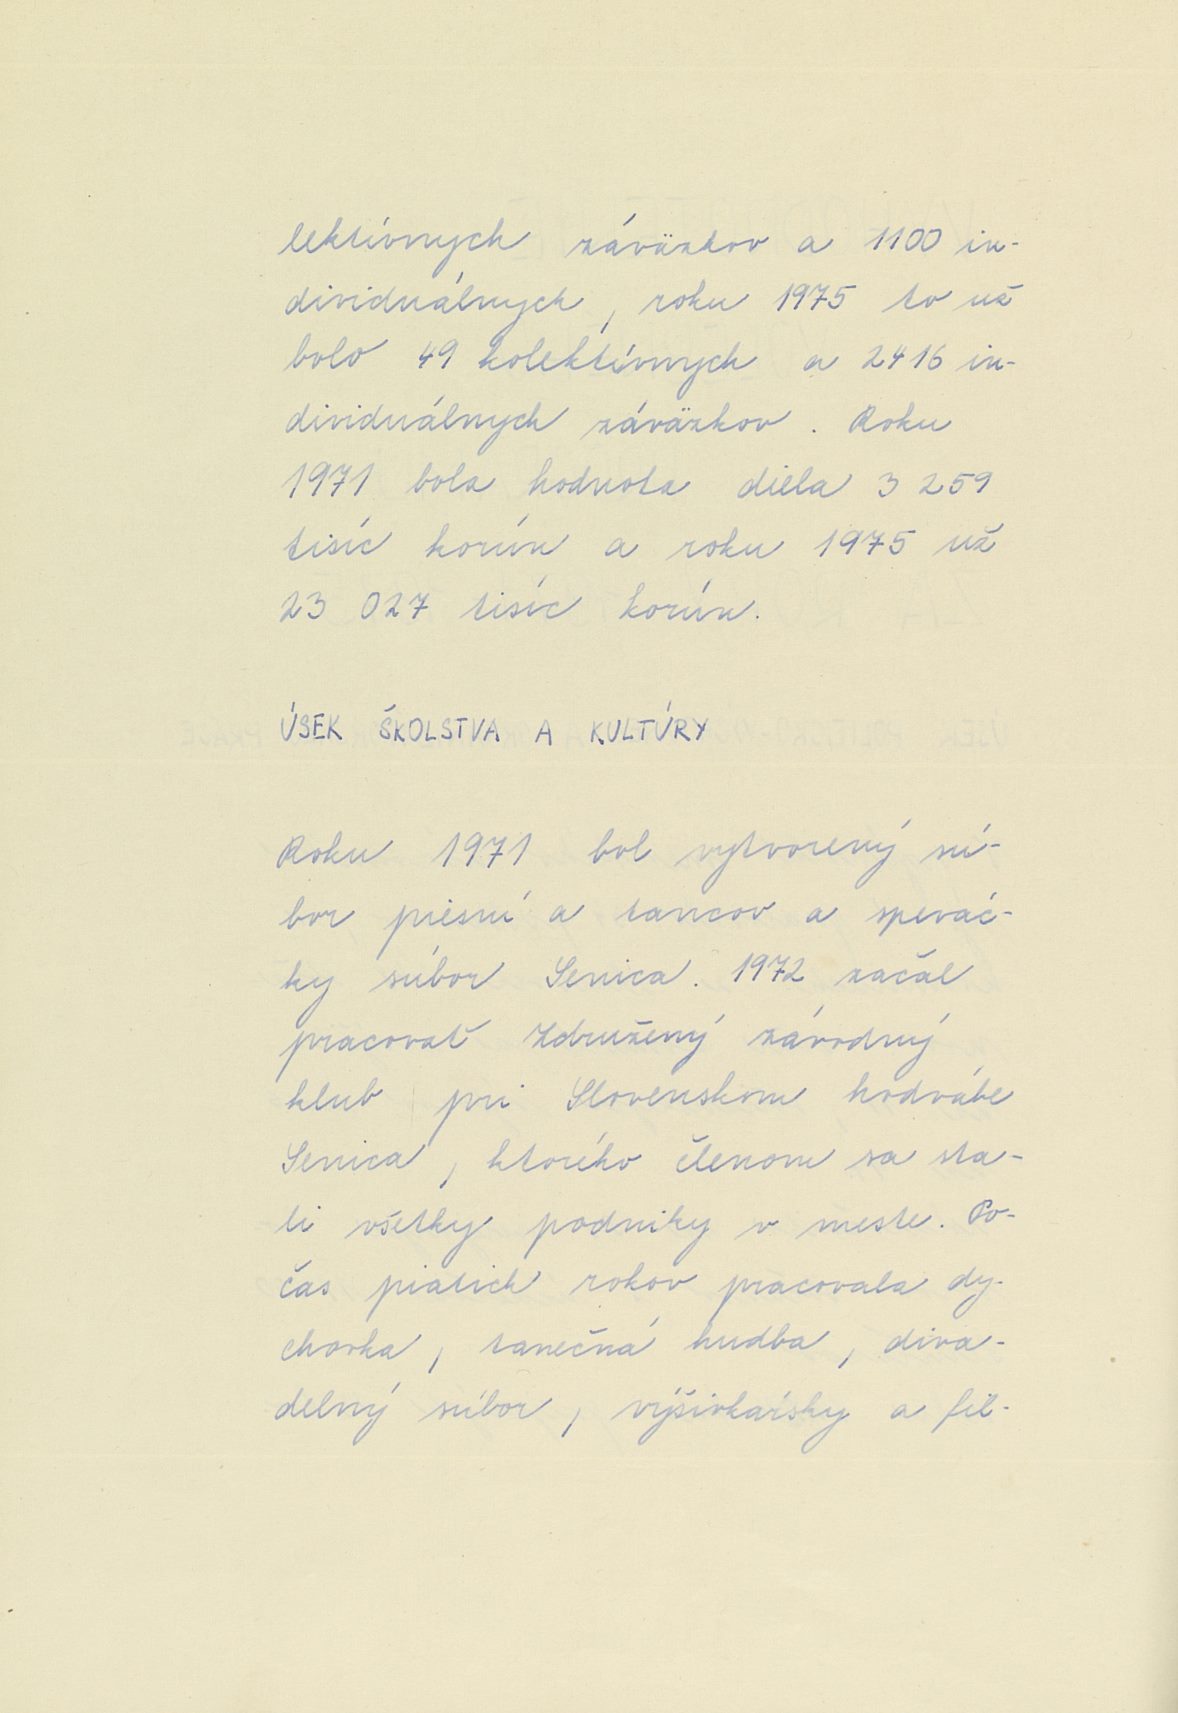 lektívnych záväzkov a 1100 in-
dividuálnych, roku 1975 to už
bolo 49 kolektívnych a 2416 in-
dividuálnych záväzkov. Roku
1971 bola hodnota diela 3 259
tisíc korún a roku 1975 už
23 027 tisíc korún.
ÚSEK ŠKOLSTVA A KULTÚRY
Roku 1971 bol vytvorený sú-
bor piesní a tancov a speváć-
ky súbor Senica. 1972 začal
pracovať Združený závodný
klub pri Slovenskom hodvábe
Senica, ktorého členom sa sta-
li všetky podniky v meste. Po-
čas piatich rokov pracovala dy-
chovka, tanečná hudba, diva-
delný súbor, výšivkársky a fil-